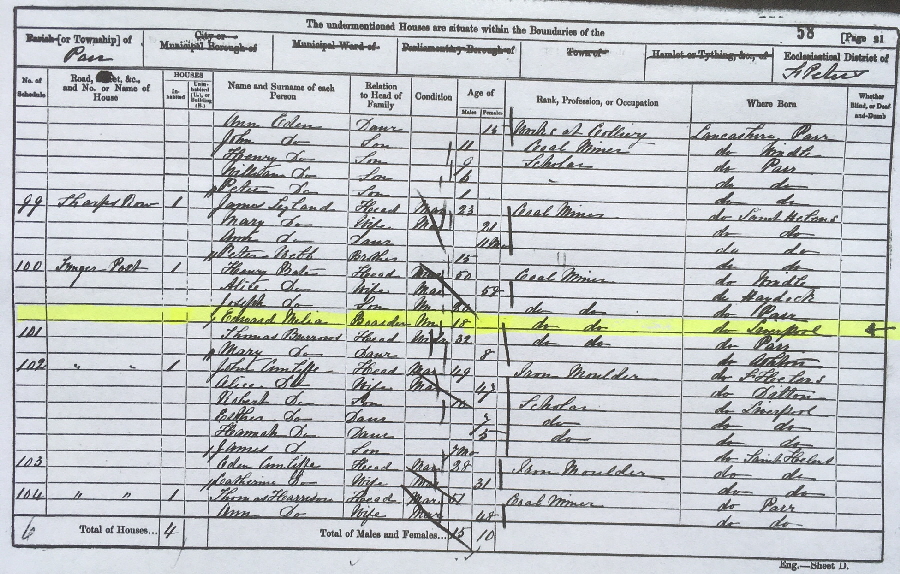 The undermentioned Houses are situate within the Boundaries of the
58 [Page 21
Parish [or Township] of Parr
City or Municipal Borough of
Municipal Ward of
Parliamentary Borough of
Town of
Hamlet or Tything, &c., of
Ecclesiastical District of St Peters
No. of Schedule
Road, &c., and No. or Name of House
HOUSES
Inhabited
Uninhabited (U.), or Building (B.)
Name and Surname of each Person
Relation to Head of Family
Condition
Age of
Males
Females
Rank, Profession, or Occupation
Where Born
Whether Blind, or Deaf-and-Dumb
Ann Eden Daur 14 Works at Colliery Lancashire Parr
John Do Son 11 Coal Miner do Windle
Henry Do Son 9 Scholar do Parr
William Do Son 6 do do
Peter Do Son 1 do do
99 Sharps Row 1 James Head Mar 23 Coal Miner do Saint Helens
Mary Do Wife Mar 21 do do
Ann Do Daur do do
Peter Brother 15 do do
100 Finger Post 1 Henry Head Mar 50 Coal Miner do Windle
Alice Do Wife Mar 52 do Haydock
Joseph Do Son Un 20 do do do Parr
Edward Melia Boarder Un 18 do do do Liverpool
101 Thomas Burrows Head Widr 32 do do do Parr
Mary Do Daur 8 do Ashton
102 " " 1 John Cunliffe Head Mar 49 Iron Moulder do St Helens
Alice Do Wife Mar 43 do Ditton
Robert Do Son Scholar do Liverpool
Esther Do Daur 7 do do do
Hannah Do Daur 5 do do do
James Do Son do Saint Helens
103 Eden Cunliffe Head Mar 28 Iron Moulder do do
Catherine Do Wife Mar 31 do do
104 " " 1 Thomas Harrison Head Mar 51 Coal Miner do Parr
Ann Do Wife Mar 48 do do
6 Total of Houses... 4 Total of Males and Females... 15 10
Eng.—Sheet D.